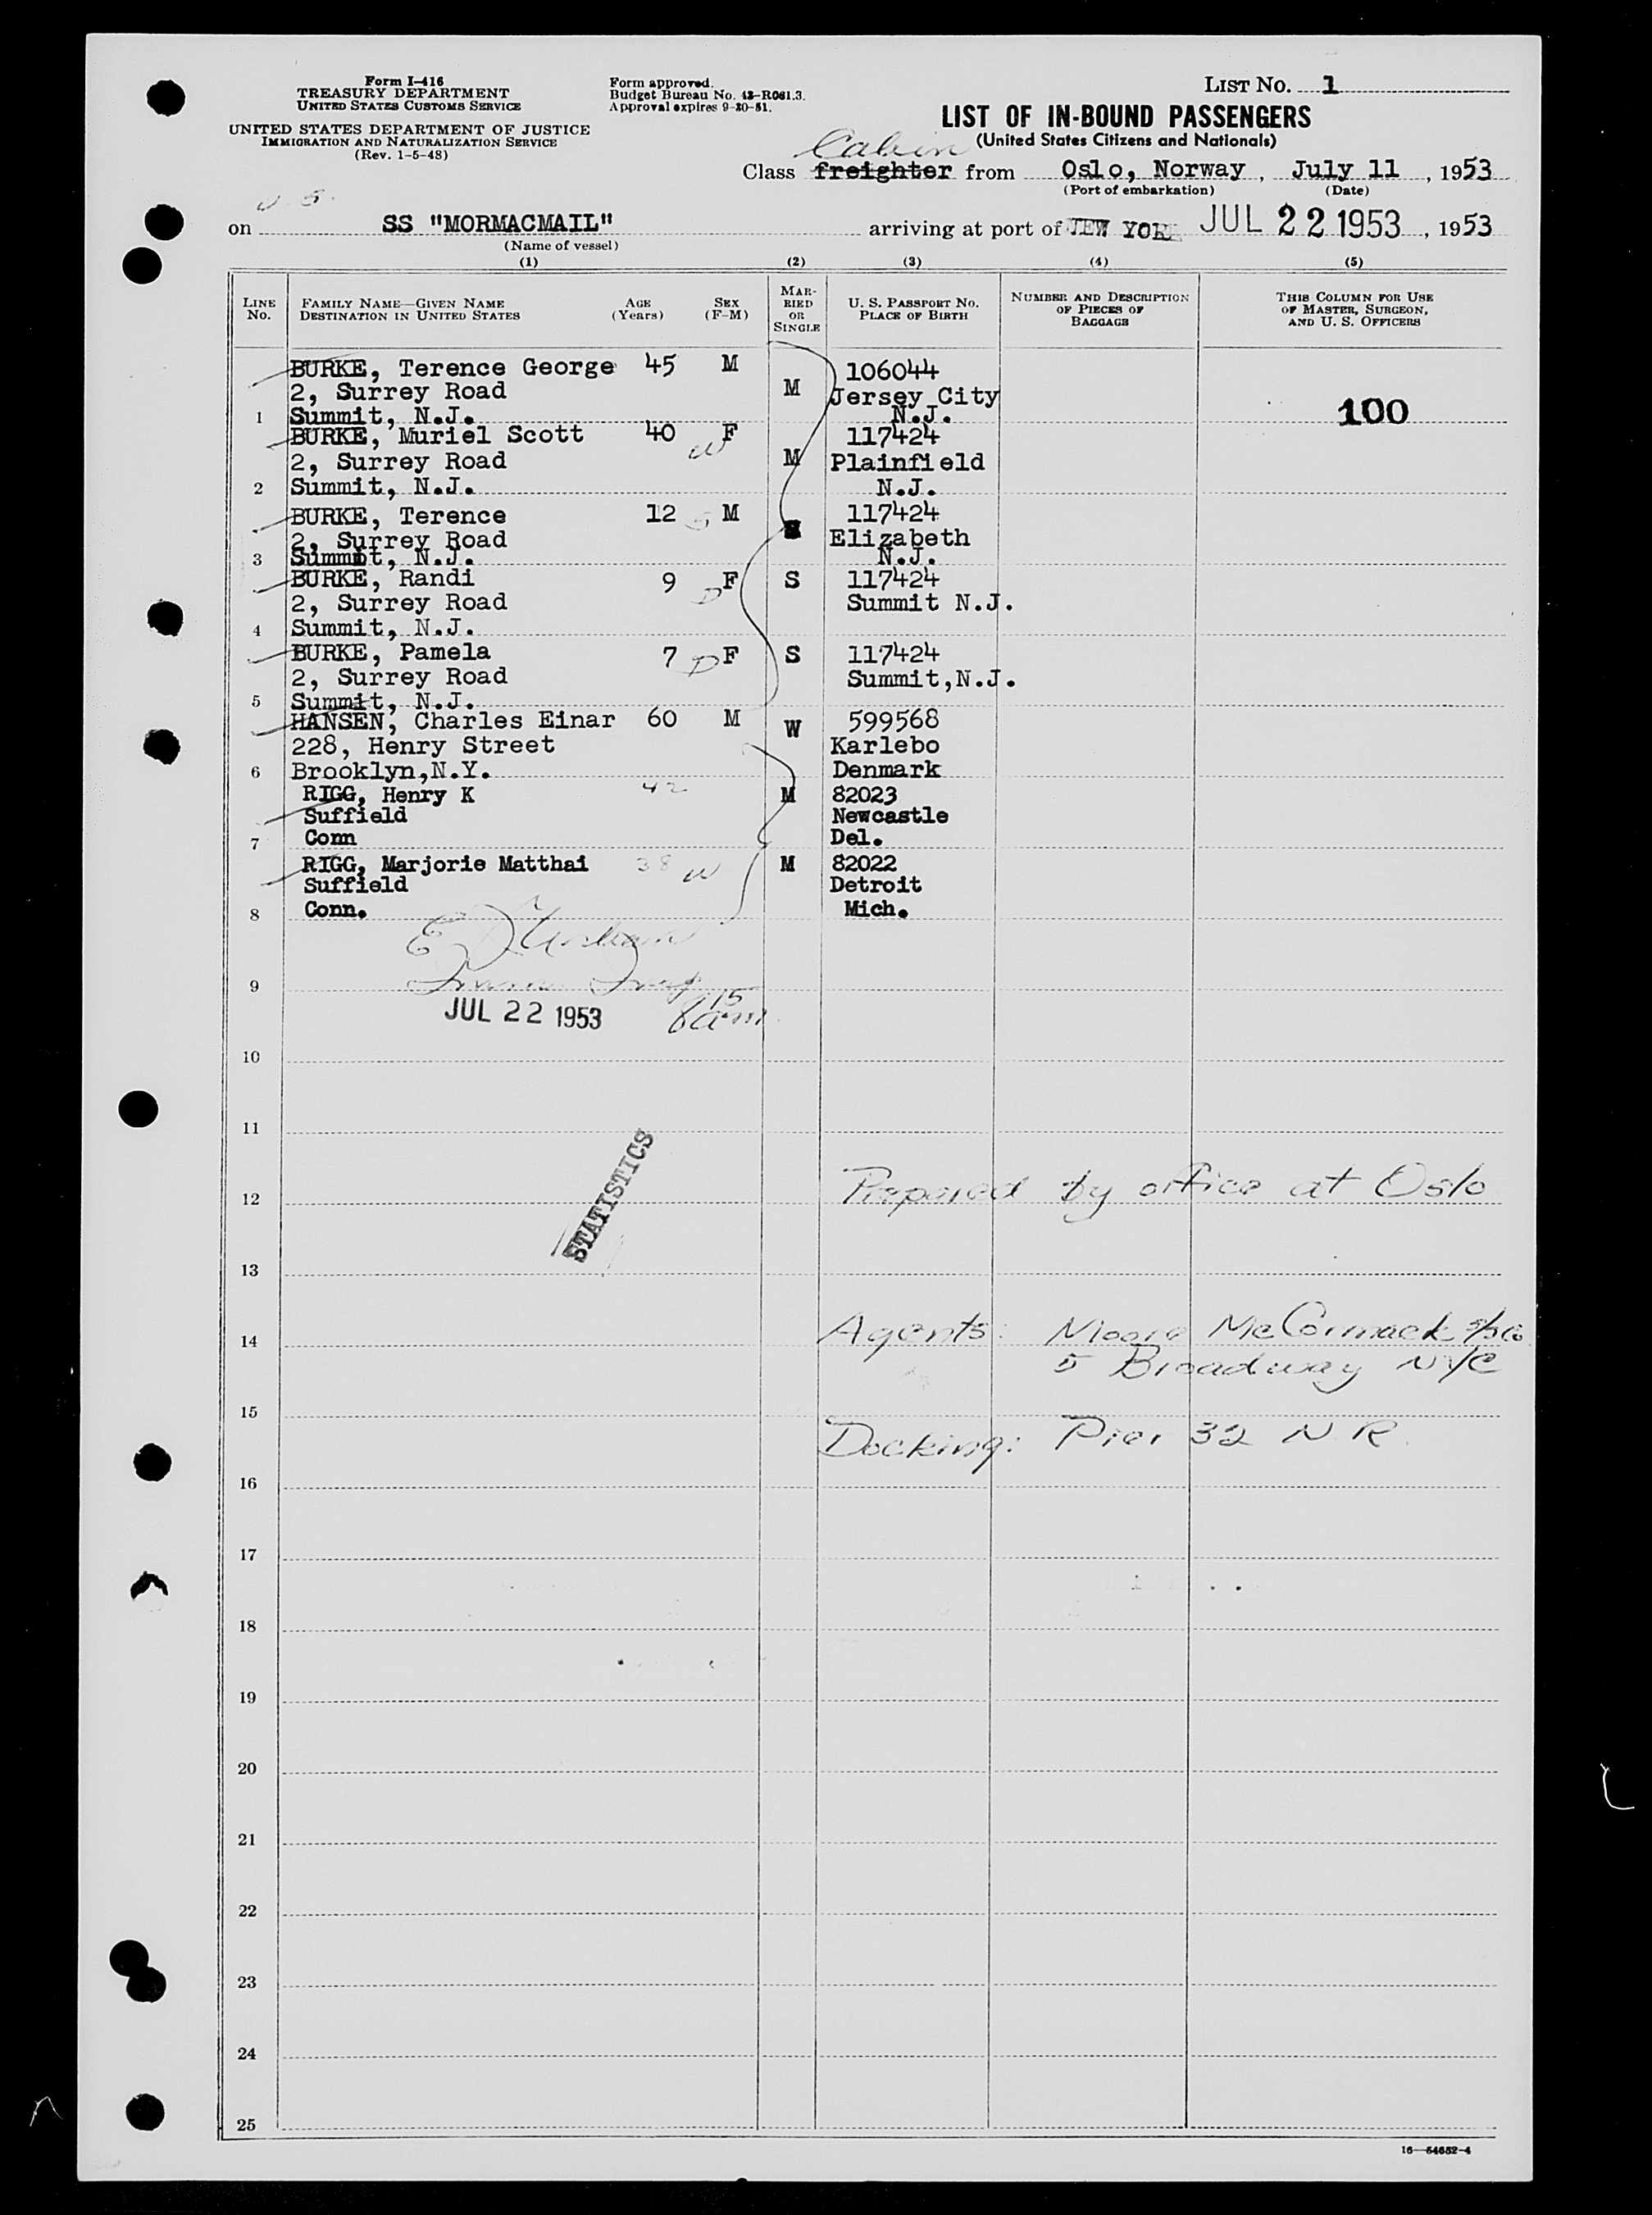 Form I-416
TREASURY DEPARTMENT
UNITED STATES CUSTOMS SERVICE
UNITED STATES DEPARTMENT OF JUSTICE
IMMIGRATION AND NATURALIZATION SERVICE
(Rev. 1-5-48)
Form approved.
Budget Bureau No. 43-R061.3.
Approval expires 9-30-51.
LIST No. 1
LIST OF IN-BOUND PASSENGERS
(United States Citizens and Nationals)
Cabin
Class freighter from Oslo, Norway, July 11, 1953
(Port of embarkation) (Date)
on SS "MORMACMAIL" arriving at port of NEW YORK JUL 22 1953, 1953
(Name of vessel)
(1) (2) (3) (4) (5)
LINE No. FAMILY NAME—GIVEN NAME DESTINATION IN UNITED STATES AGE (Years) SEX (F-M) MARRIED OR SINGLE U. S. PASSPORT No. PLACE OF BIRTH NUMBER AND DESCRIPTION OF PIECES OF BAGGAGE THIS COLUMN FOR USE OF MASTER, SURGEON, AND U. S. OFFICERS
BURKE, Terence George 45 M 106044
2, Surrey Road M Jersey City
1 Summit, N.J. N.J. 100
BURKE, Muriel Scott 40 W F 117424
2, Surrey Road M Plainfield
2 Summit, N.J. N.J.
BURKE, Terence 12 S M 117424
2, Surrey Road Elizabeth
3 Summit, N.J. N.J.
BURKE, Randi 9 D F S 117424
2, Surrey Road Summit N.J.
4 Summit, N.J.
BURKE, Pamela 7 D F S 117424
2, Surrey Road Summit,N.J.
5 Summit, N.J.
HANSEN, Charles Einar 60 M W 599568
228, Henry Street Karlebo
6 Brooklyn,N.Y. Denmark
RIGG, Henry K 42 M 82023
Suffield Newcastle
7 Conn Del.
RIGG, Marjorie Matthai 38 W M 82022
Suffield Detroit
8 Conn. Mich.
9
JUL 22 1953
10
11
STATISTICS
12 Prepared by office at Oslo
13
14 Agents: Moore McCormack S/S Co
5 Broadway NYC
15
Docking: Pier 32 N R
16
17
18
19
20
21
22
23
24
25
16—54652-4